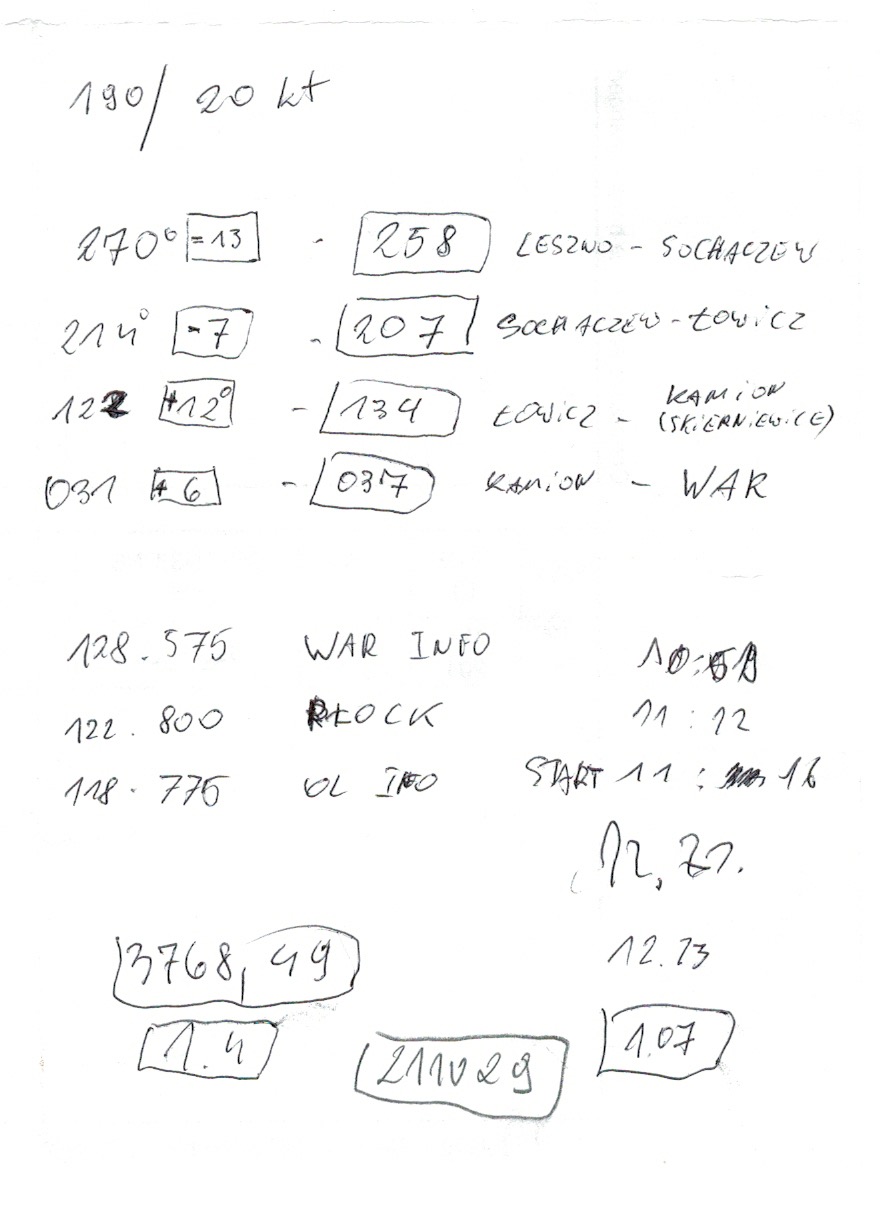 190/ 20 kt
270° =13 - 258 LESZNO - SOCHACZEW
214° -7 - 207 SOCHACZEW - ŁOWICZ
122 +12° - 134 ŁOWICZ - KAMION (SKIERNIEWICE)
031 +6 - 037 KAMION - WAR
128.575 WAR INFO
122.800 PŁOCK 11:12
118.775 OL INFO START 11: 16
12,21.
3768,49 12.23
1.4 211029 1.07